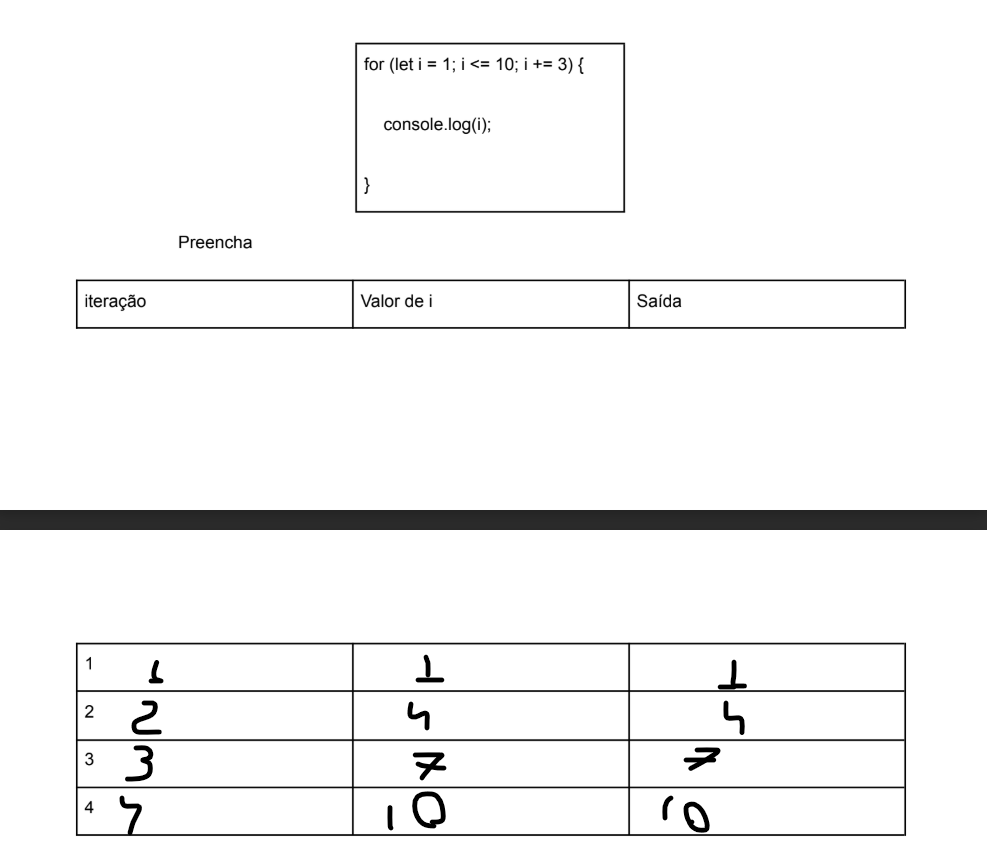 for (let i = 1; i <= 10; i += 3) {
console.log(i);
}
Preencha
iteração Valor de i Saída
1 1 1 1
2 2 4 4
3 3 7 7
4 4 10 10